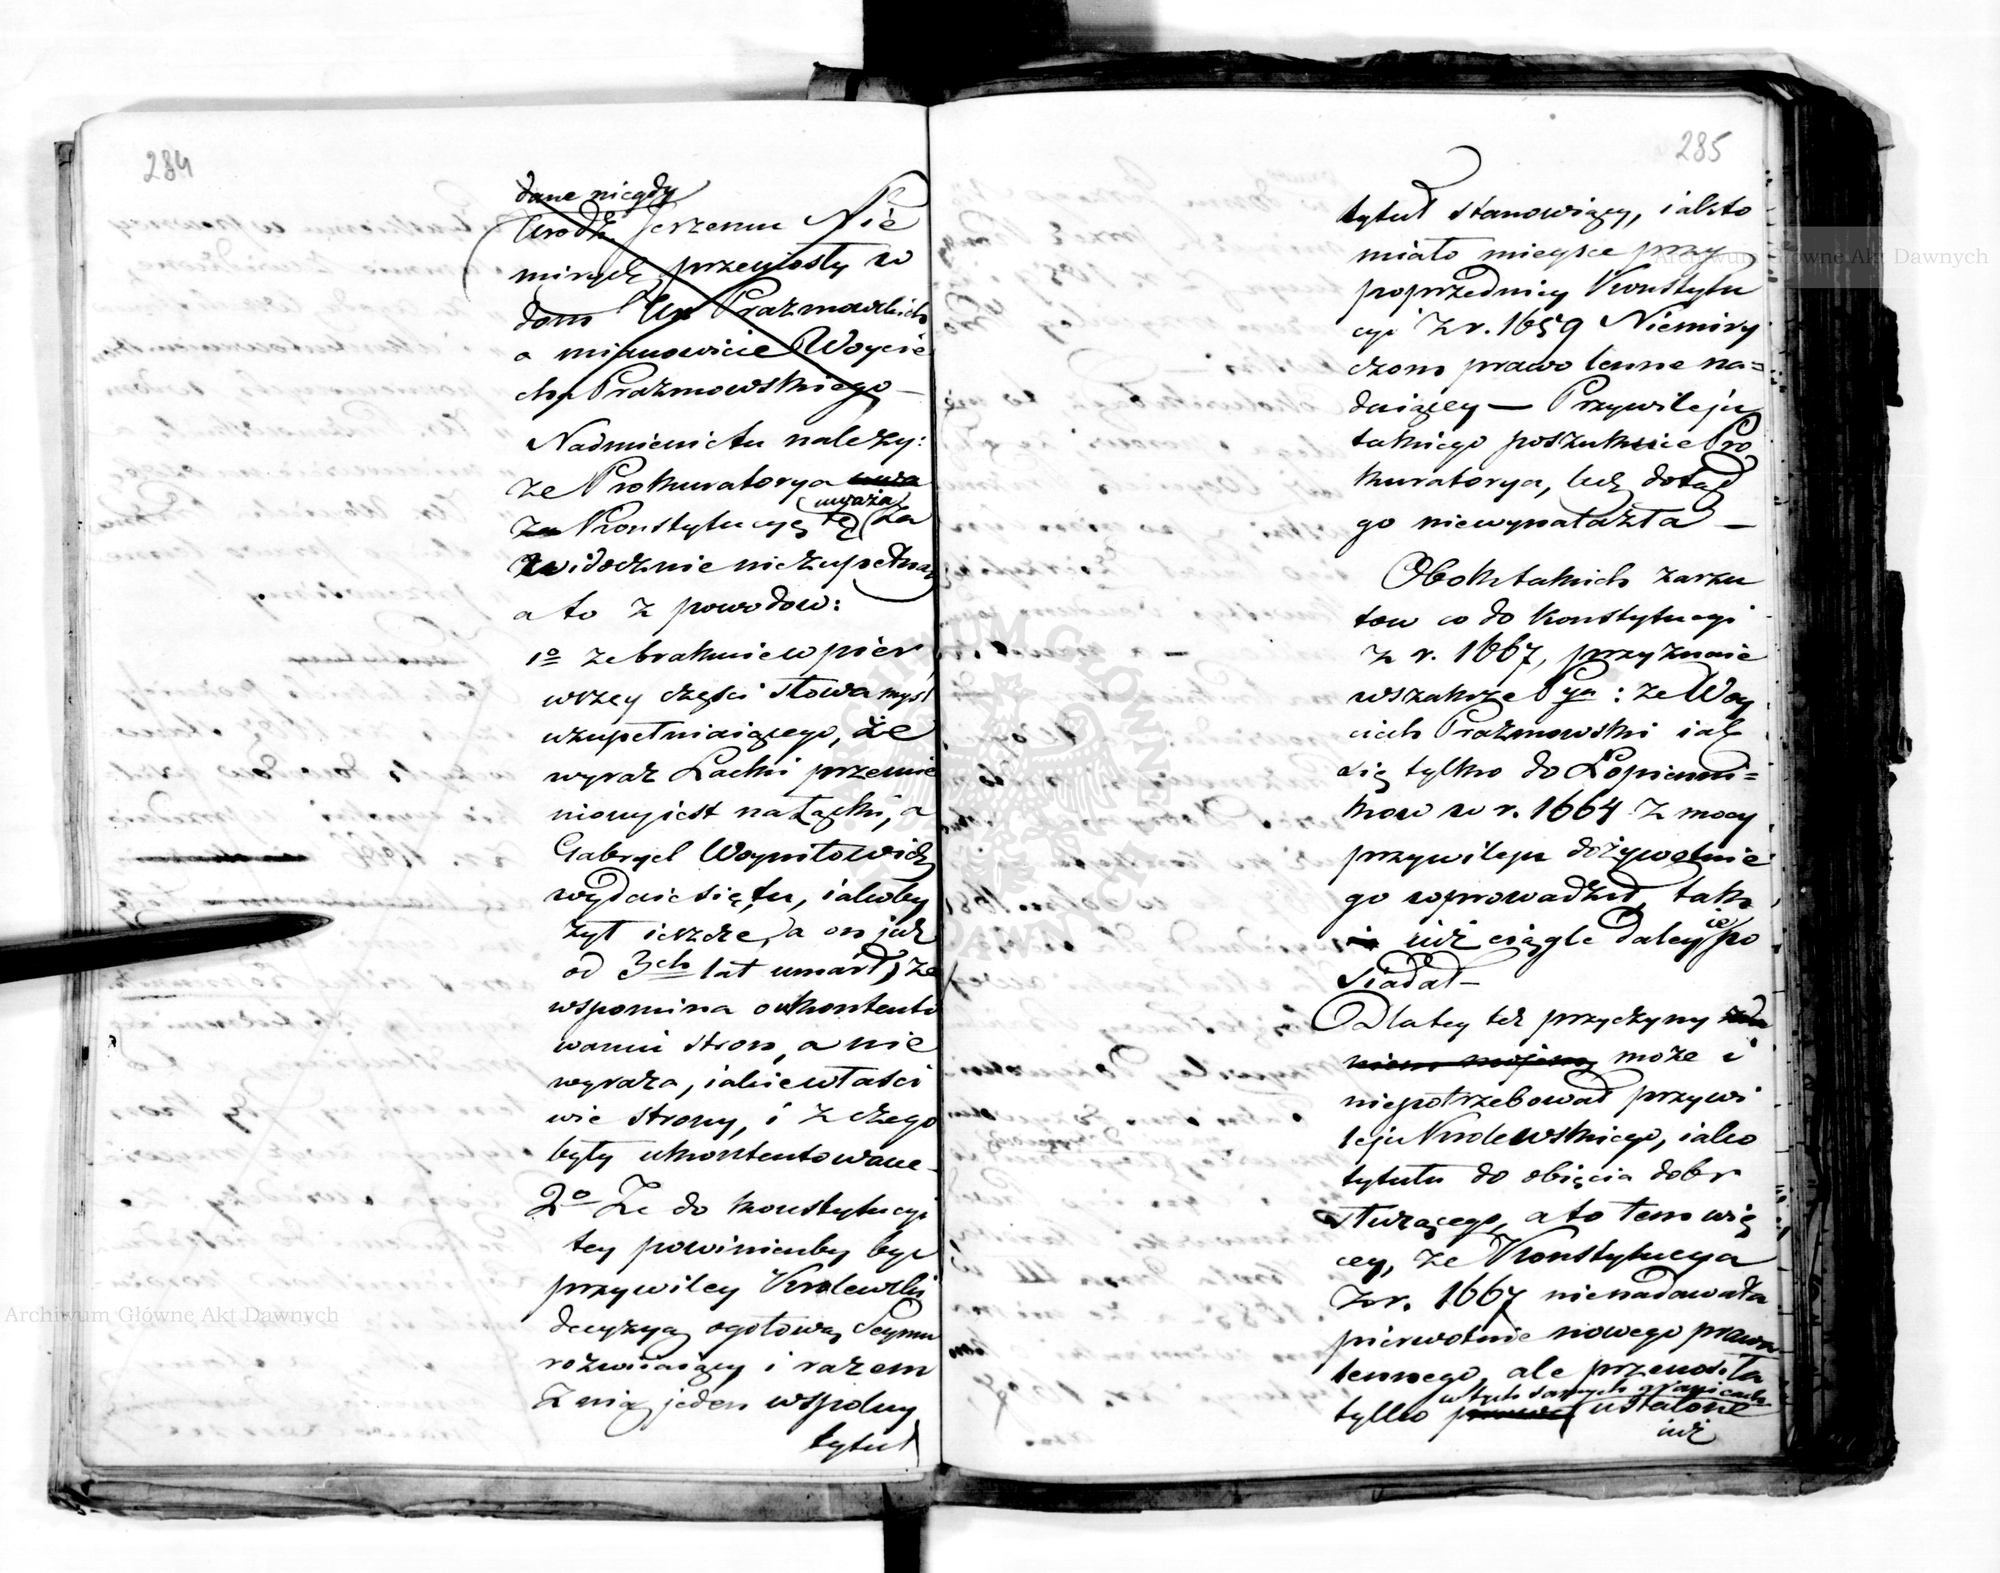 284
dane niegdy
Urodz. Jerzemu Nie
mirycz, przeniosły w
dom Ur. Prazmowskich
a mianowicie Woycie
cha Prazmowskiego —
Nadmienictu nalezy:
ze Prokuratorya uwa
uważa
za Konstytucyę tę za
widocznie niezupełną
a to z powodow:
1o ze brakuie w pier
wszey części słowa mysl
uzupełniaiącego, że
wyraz Łacki przemie
niony iest na Łącki, a
Gabryel Woyniłowicz
wydaie się tu, iakoby
żył ieszcze, a on już
od 3ch lat umarł, ze
wspomina o ukontento
waniu stron, a nie
wyraża, iakie właści
wie strony, i z czego
były ukontentowane
2o Ze do konstytucyi
tey powinienby być
przywiley Krolewski
decyzyą ogołową Seymu
rozwiiaiący i razem
z nią jeden wspolny
tytuł
285
tytuł stanowiący, iak to
miało mieysce przy
poprzedniey Konstytu
cyi z r. 1659 Niemiry
czom prawo lenne na=
daiącey — Przywileju
takiego poszukuie Pro
kuratorya, lecz dotąd
go niewynalazła —
Obok takich zarzu
tow co do Konstytucyi
z r. 1667, przyznaie
wszakże Pya: ze Woy
ciech Prazmowski iak
się tylko do Łopienni=
kow w r. 1664 z mocy
przywileju dożywotnie
go wprowadził, tak
ie
iuż ciągle daley po
siadał —
Dla tey też przyczyny
może i
niepotrzebował przywi
leju Krolewskiego, iako
tytułu do obięcia dobr
służącego, a to tem wię
cey, ze Konstytucya
z r. 1667 nienadawała
pierwotnie nowego prawa
lennego, ale przenosiła
w tych samych granicach
tylko ustalone
iuż
Archiwum Główne Akt Dawnych
Archiwum Główne Akt Dawnych
ARCHIWUM GŁÓWNE AKT DAWNYCH